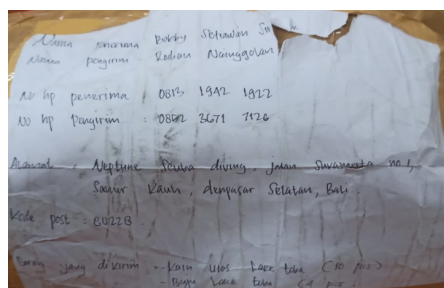 Nama penerima Bobby Setiawan SH
Nama pengirim Rodian Nainggolan
No hp penerima : 0813 1942 1922
No hp Pengirim : 3671 7126
Alamat : Neptune Scuba diving, jalan no 1,
Sanur Kauh, denpasar Selatan, Bali.
Kode post : 80228
Barang yang dikirim - Kain ulos Lake toba (10 pcs)
- Lake toba